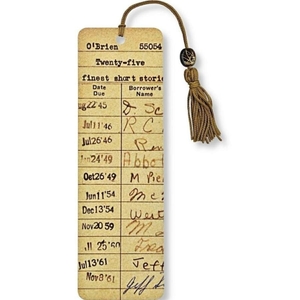 O'Brien 55054
Twenty-five
finest short stori
Date Due Borrower's Name
ug 22'45
Jul 11'46 R C
Jul 26'46
24'49 Abbo
Oct 26'49 M Pie
Jun 11'54
Dec 13'54 West
Nov 20 59 M
25'60 Fred
Jul 13'61 Jeff
Nov 8'61 Jeff S